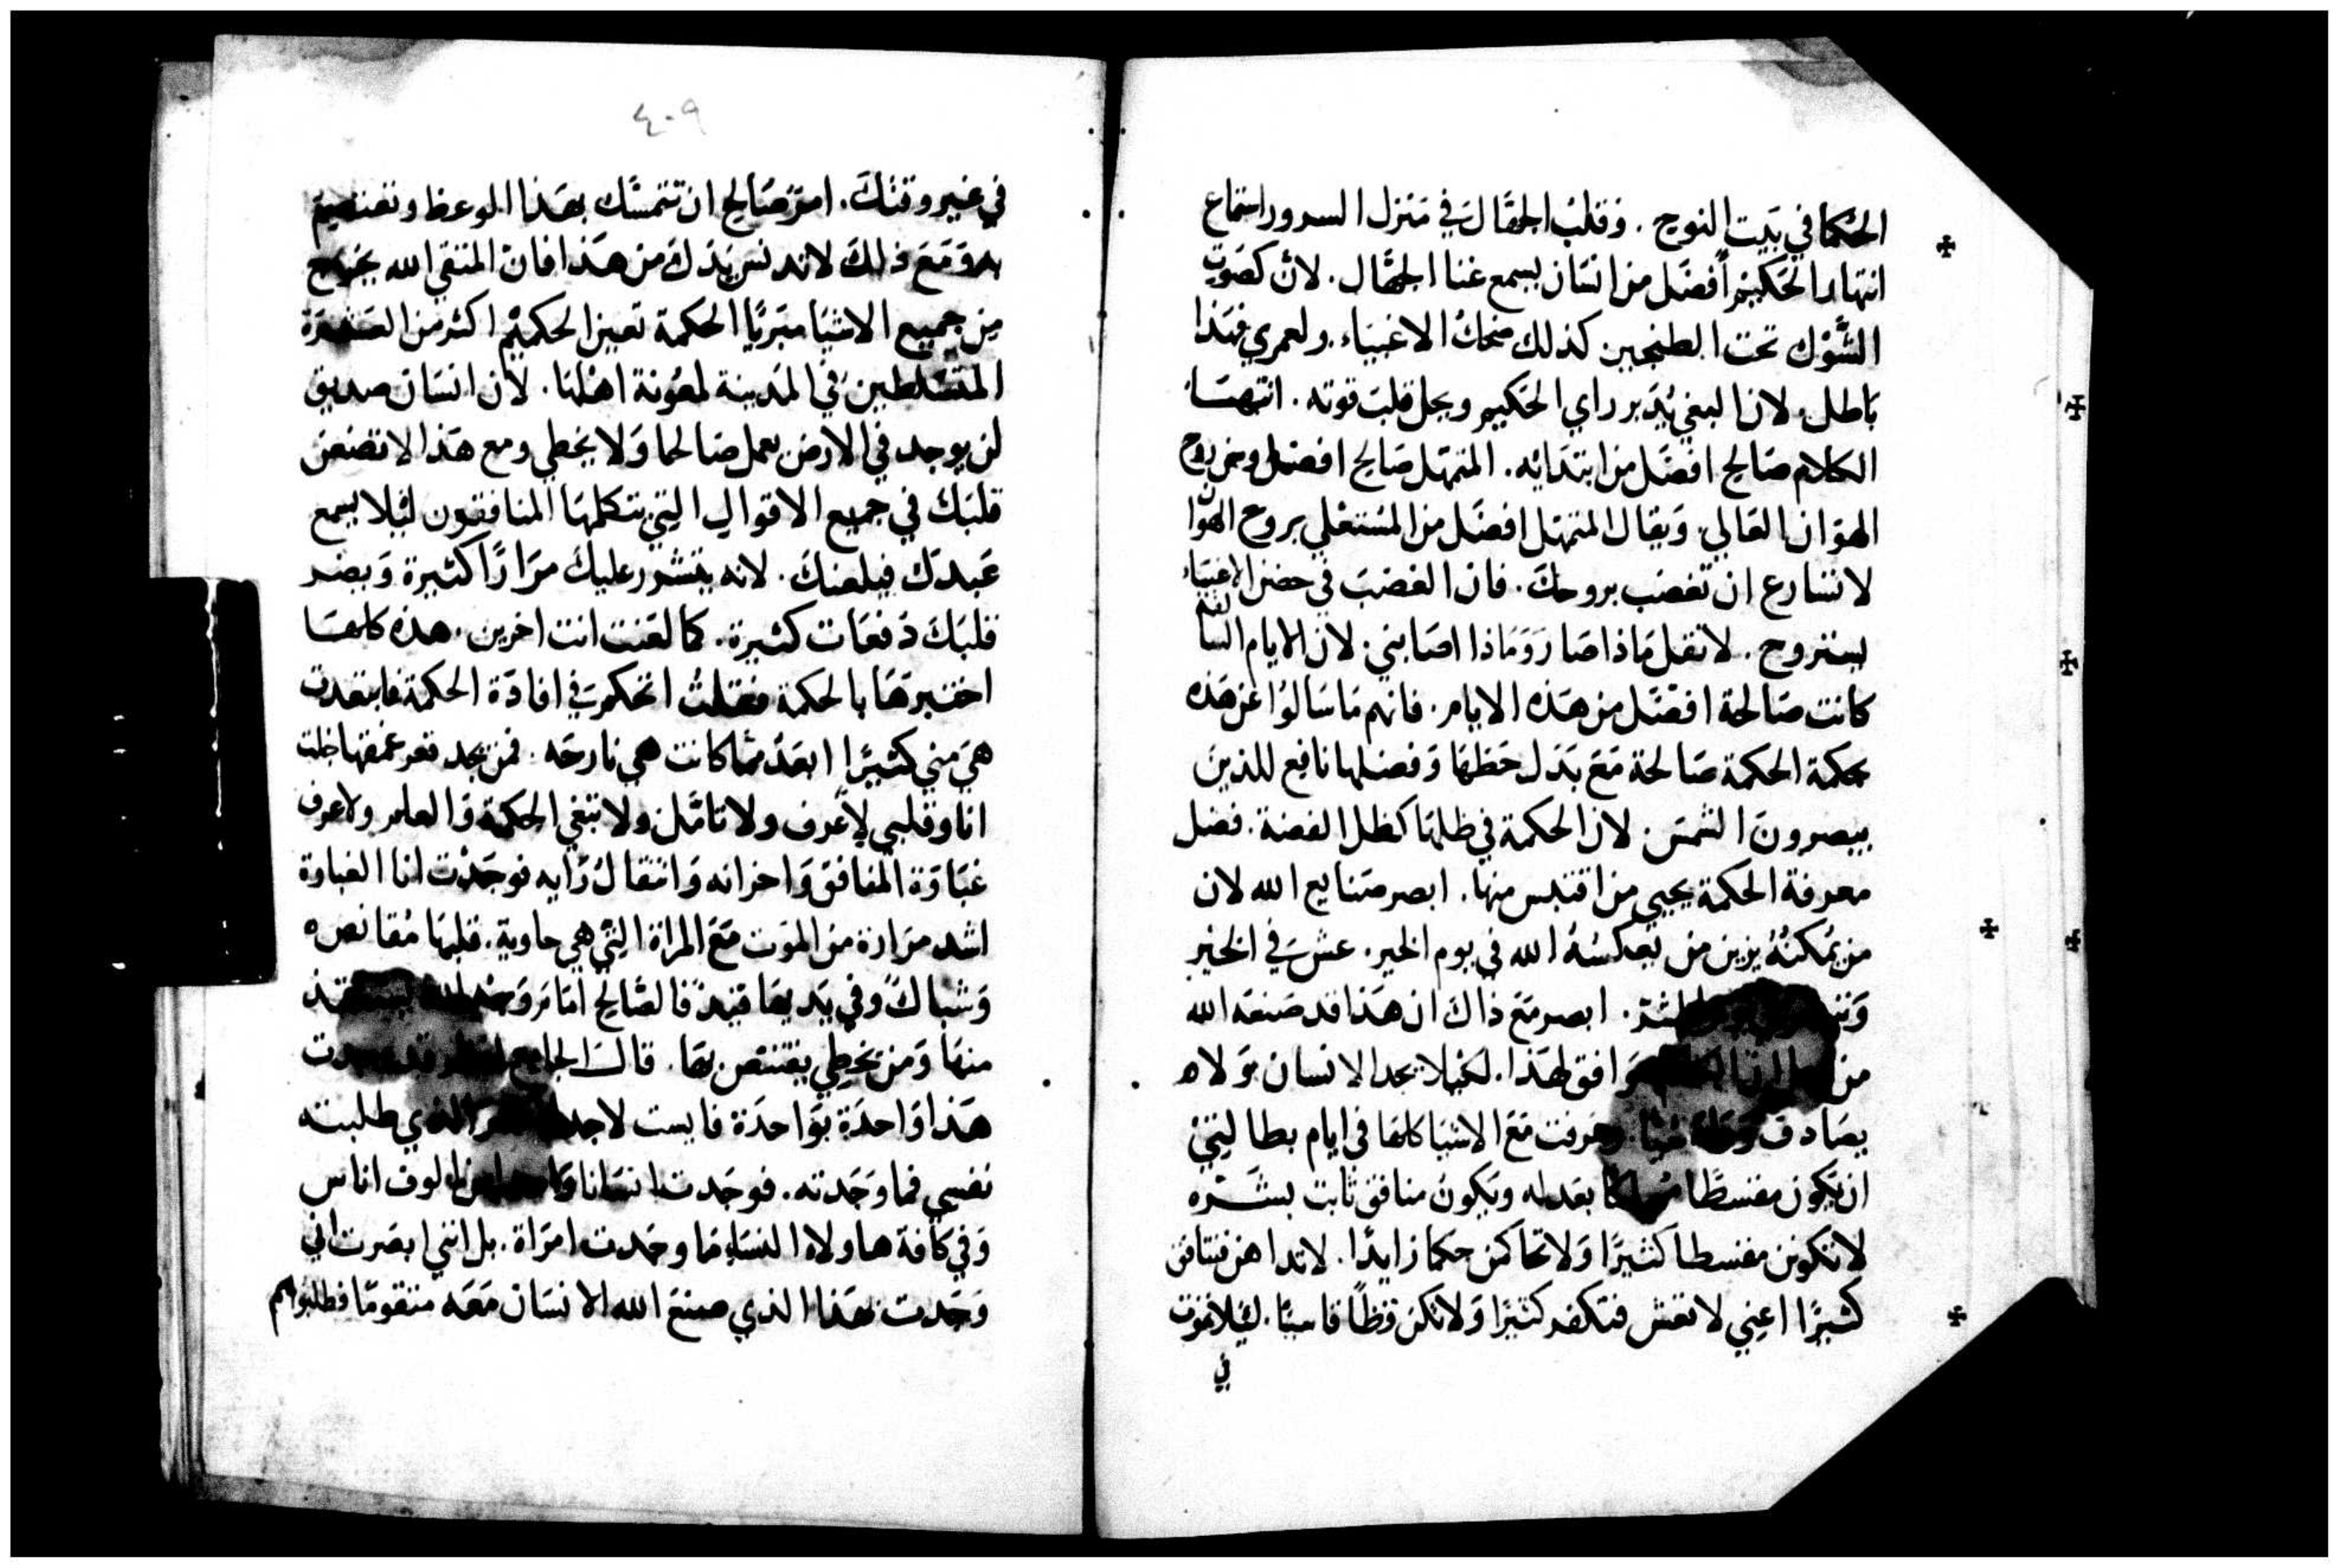 الحكما في بيت النوح. وقلب الجهال في منزل السرور استماع
انتهار الحكيم افضل من انسان يسمع غنا الجهال. لان كصوت
الشوك تحت الطنجير كذلك ضحك الاغبياء ولعمري فهذا
باطل ولان البغي يدبر راي الحكيم ويحل قلب قوته. انتهسا
الكلام صالح افضل من ابتدائه. المتمهل صالح افضل من روح
الهوان العالي ويقال المتمهل افضل من المستعلي بروح الهوان
لا تسارع ان تغضب بروحك. فان الغضب في حضن الاغبياء
يستروح. لا تقل ماذا صار وماذا اصابني. لان الايام السالفه
كانت صالحة افضل من هذه الايام. فانهم ما سالوا عن هذه
بحكمة الحكمة صالحة مع بدل حظها وفضلها نافع للذين
يبصرون الشمس. لان الحكمة في ظلها كظل الفضة. فضل
معرفة الحكمة يحيي من اقتبس منها. ابصر صنايع الله لان
من يمكنه يزين من يعكسه الله في يوم الخير. عش في الخير
الشر. ابصر مع ذاك ان هذا قد صنعه الله
من موافق لهذا. لكيلا يجد الانسان تولاه
يصادف وعرفت مع الاشيا كلها في ايام بطالتي
ان يكون مقسطا بعدله ويكون منافق ثابت بشره
لا تكونن مقسطا كثيرا ولا تحاكمن حكما زايدا. لا تداهن فتنافق
كثيرا اعني لا تغش فتكفر كثيرا ولا تكن فظا قاسيا. ليلا تموت
في
٤٠٩
في غير وقتك. امر صالح ان تتمسك بهذا الوعظ وتعتصم
به ومع ذلك لا تدنس يدك من هذا فان المتقي الله يخرج
من جميع الاشيا متبريا الحكمة تعين الحكيم اكثر من العشرة
المتسلطين في المدينة لمعونة اهلها. لان انسان صديق
لن يوجد في الارض يعمل صالحا ولا يخطي ومع هذا لا تضعن
قلبك في جميع الاقوال التي تتكلمها المنافقون ليلا يسمع
عبدك فيلعنك. لانه يتشور عليك مرارا كثيرة ويضر
قلبك دفعات كثيرة. كما لعنت انت اخرين. هذه كلهسا
اختبرتها بالحكمة فقلت اتحكم في افادة الحكمة فابتعدت
هي مني كثيرا ابعد مما كانت هي نارحه. فمن يجد قعر عمقها جلت
انا وقلبي لاعرف ولا تامل ولا نبتغي الحكمة والعلم ولاعرف
غباوة المنافق واحزانه وانتقال رايه فوجدت انا الغباوة
اشد مرارة من الموت مع المراة التي هي حاوية. قلبها مقانصه
وشباك وفي يديها قيد فالصالح امام وجه الله يستنقذ
منها ومن يخطي يقتنص بها. قال الجامع انظر قد وجدت
هذا واحدة بواحدة فايست لاجد الذي طلبته
نفسي فما وجدته. فوجدت انسانا واحدا من الوف اناس
وفي كافة هاولاء النساء ما وجدت امراة. بل انني ابصرت اني
وجدت هذا الذي صنع الله الانسان معه متقوما فطلبوا هم